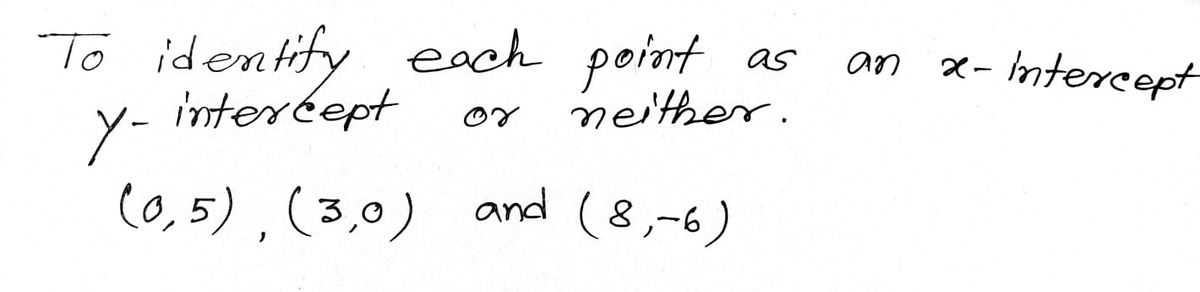 To identify each point as an x-intercept
y-intercept or neither.
(0,5), (3,0) and (8,-6)